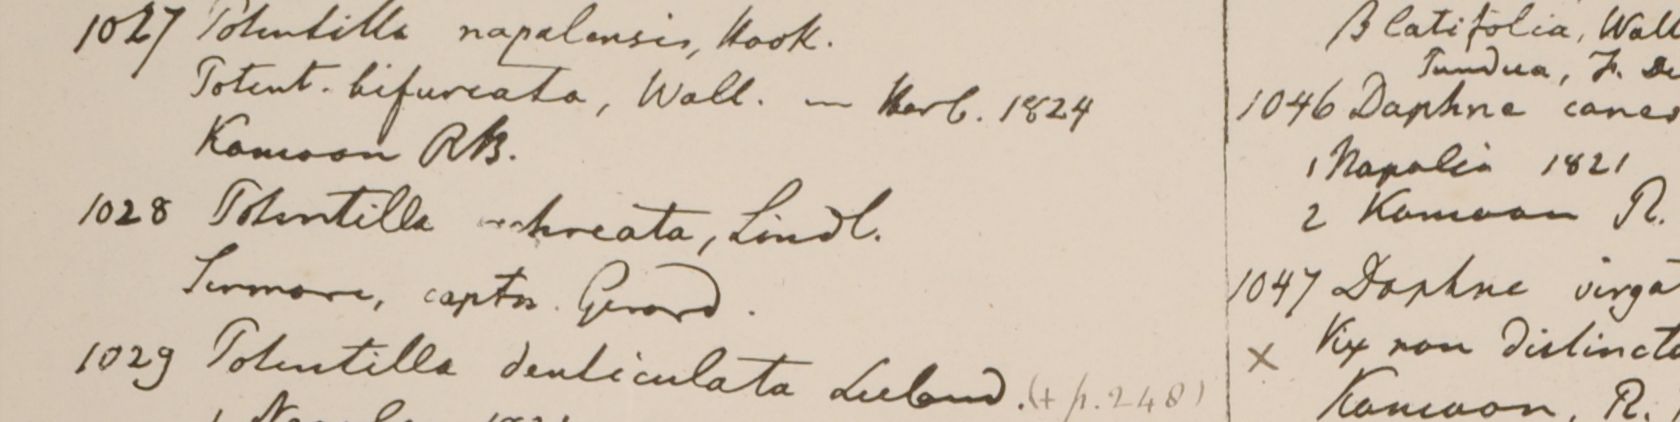 1027 Potentilla napalensis, Hook.
Potent. bifurcata, Wall. — Herb. 1824
Kamoon RB.
1028 Potentilla ochreata, Lindl.
Sirmore, captn. Gerard.
1029 Potentilla denticulata (+ p. 248)
β latifolia, Wall
1046 Daphne
1 Napalia 1821
2 Kamoon R.
1047 Daphne virgat
x Vix non distincta
Kamoon, R.